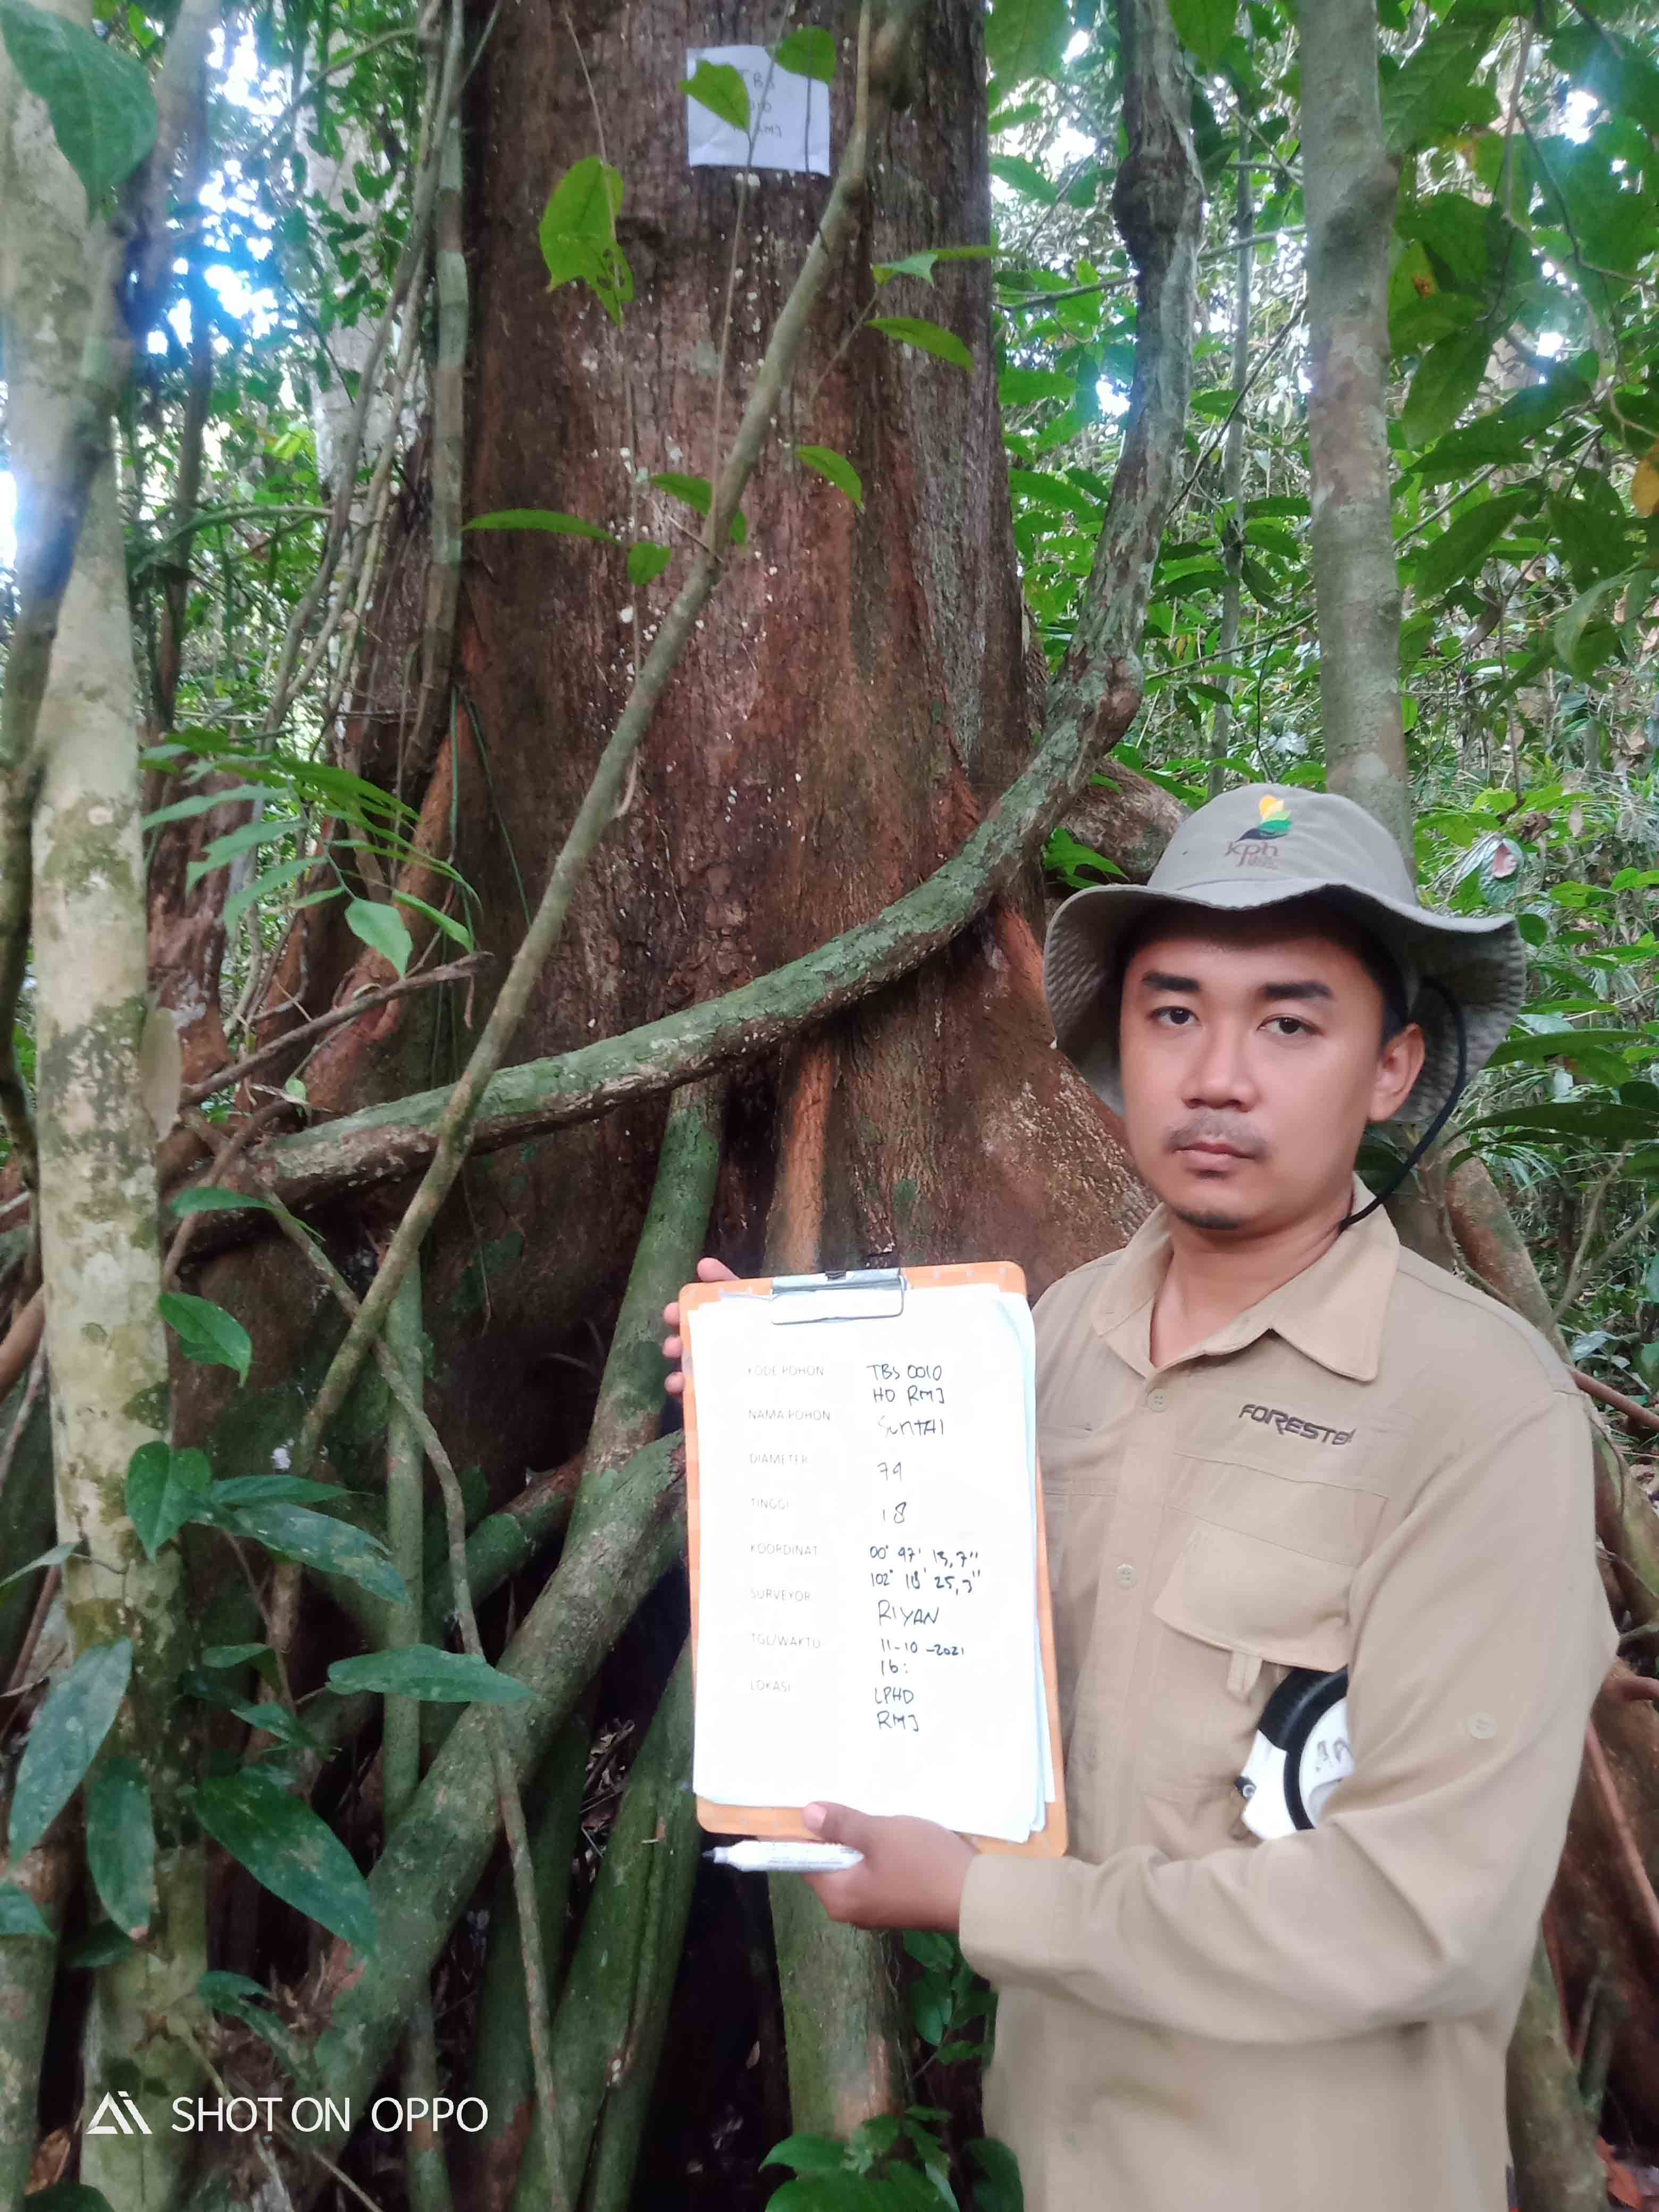 kph
FORESTER
KODE POHON TBS 0010
HD RMJ
NAMA POHON SUNTAI
DIAMETER 79
TINGGI 18
KOORDINAT 00° 47' 13,7"
102° 18' 25,3"
SURVEYOR RIYAN
TGL/WAKTU 11-10-2021
16:
LOKASI LPHD
RMJ
SHOT ON OPPO